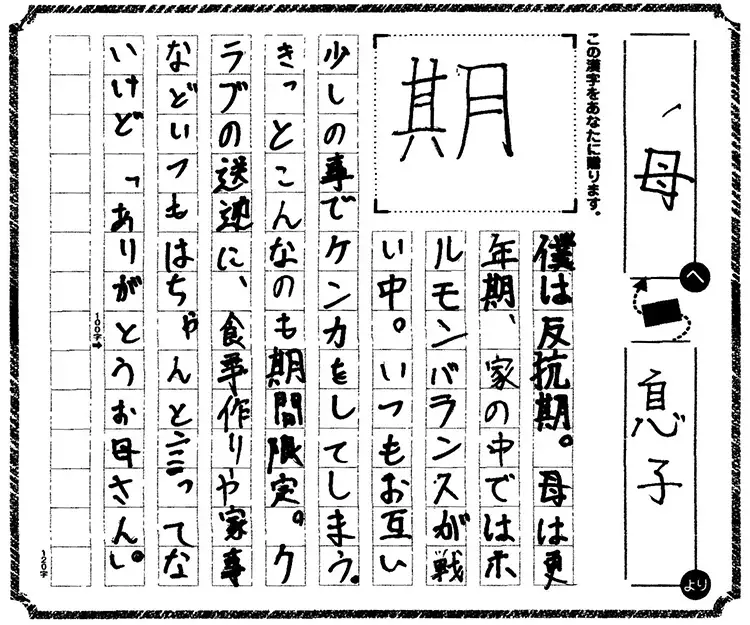 母
へ
息子
より
この漢字をあなたに贈ります。
期
僕は反抗期。母は更
年期、家の中ではホ
ルモンバランスが戦
い中。いつもお互い
少しの事でケンカをしてしまう。
きっとこんなのも期間限定。ク
ラブの送迎に、食事作りや家事
などいつもはちゃんと言ってな
いけど「ありがとうお母さん」。
100字
120字